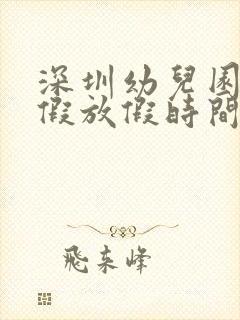 深圳幼兒園
假放假時間
飛来峰